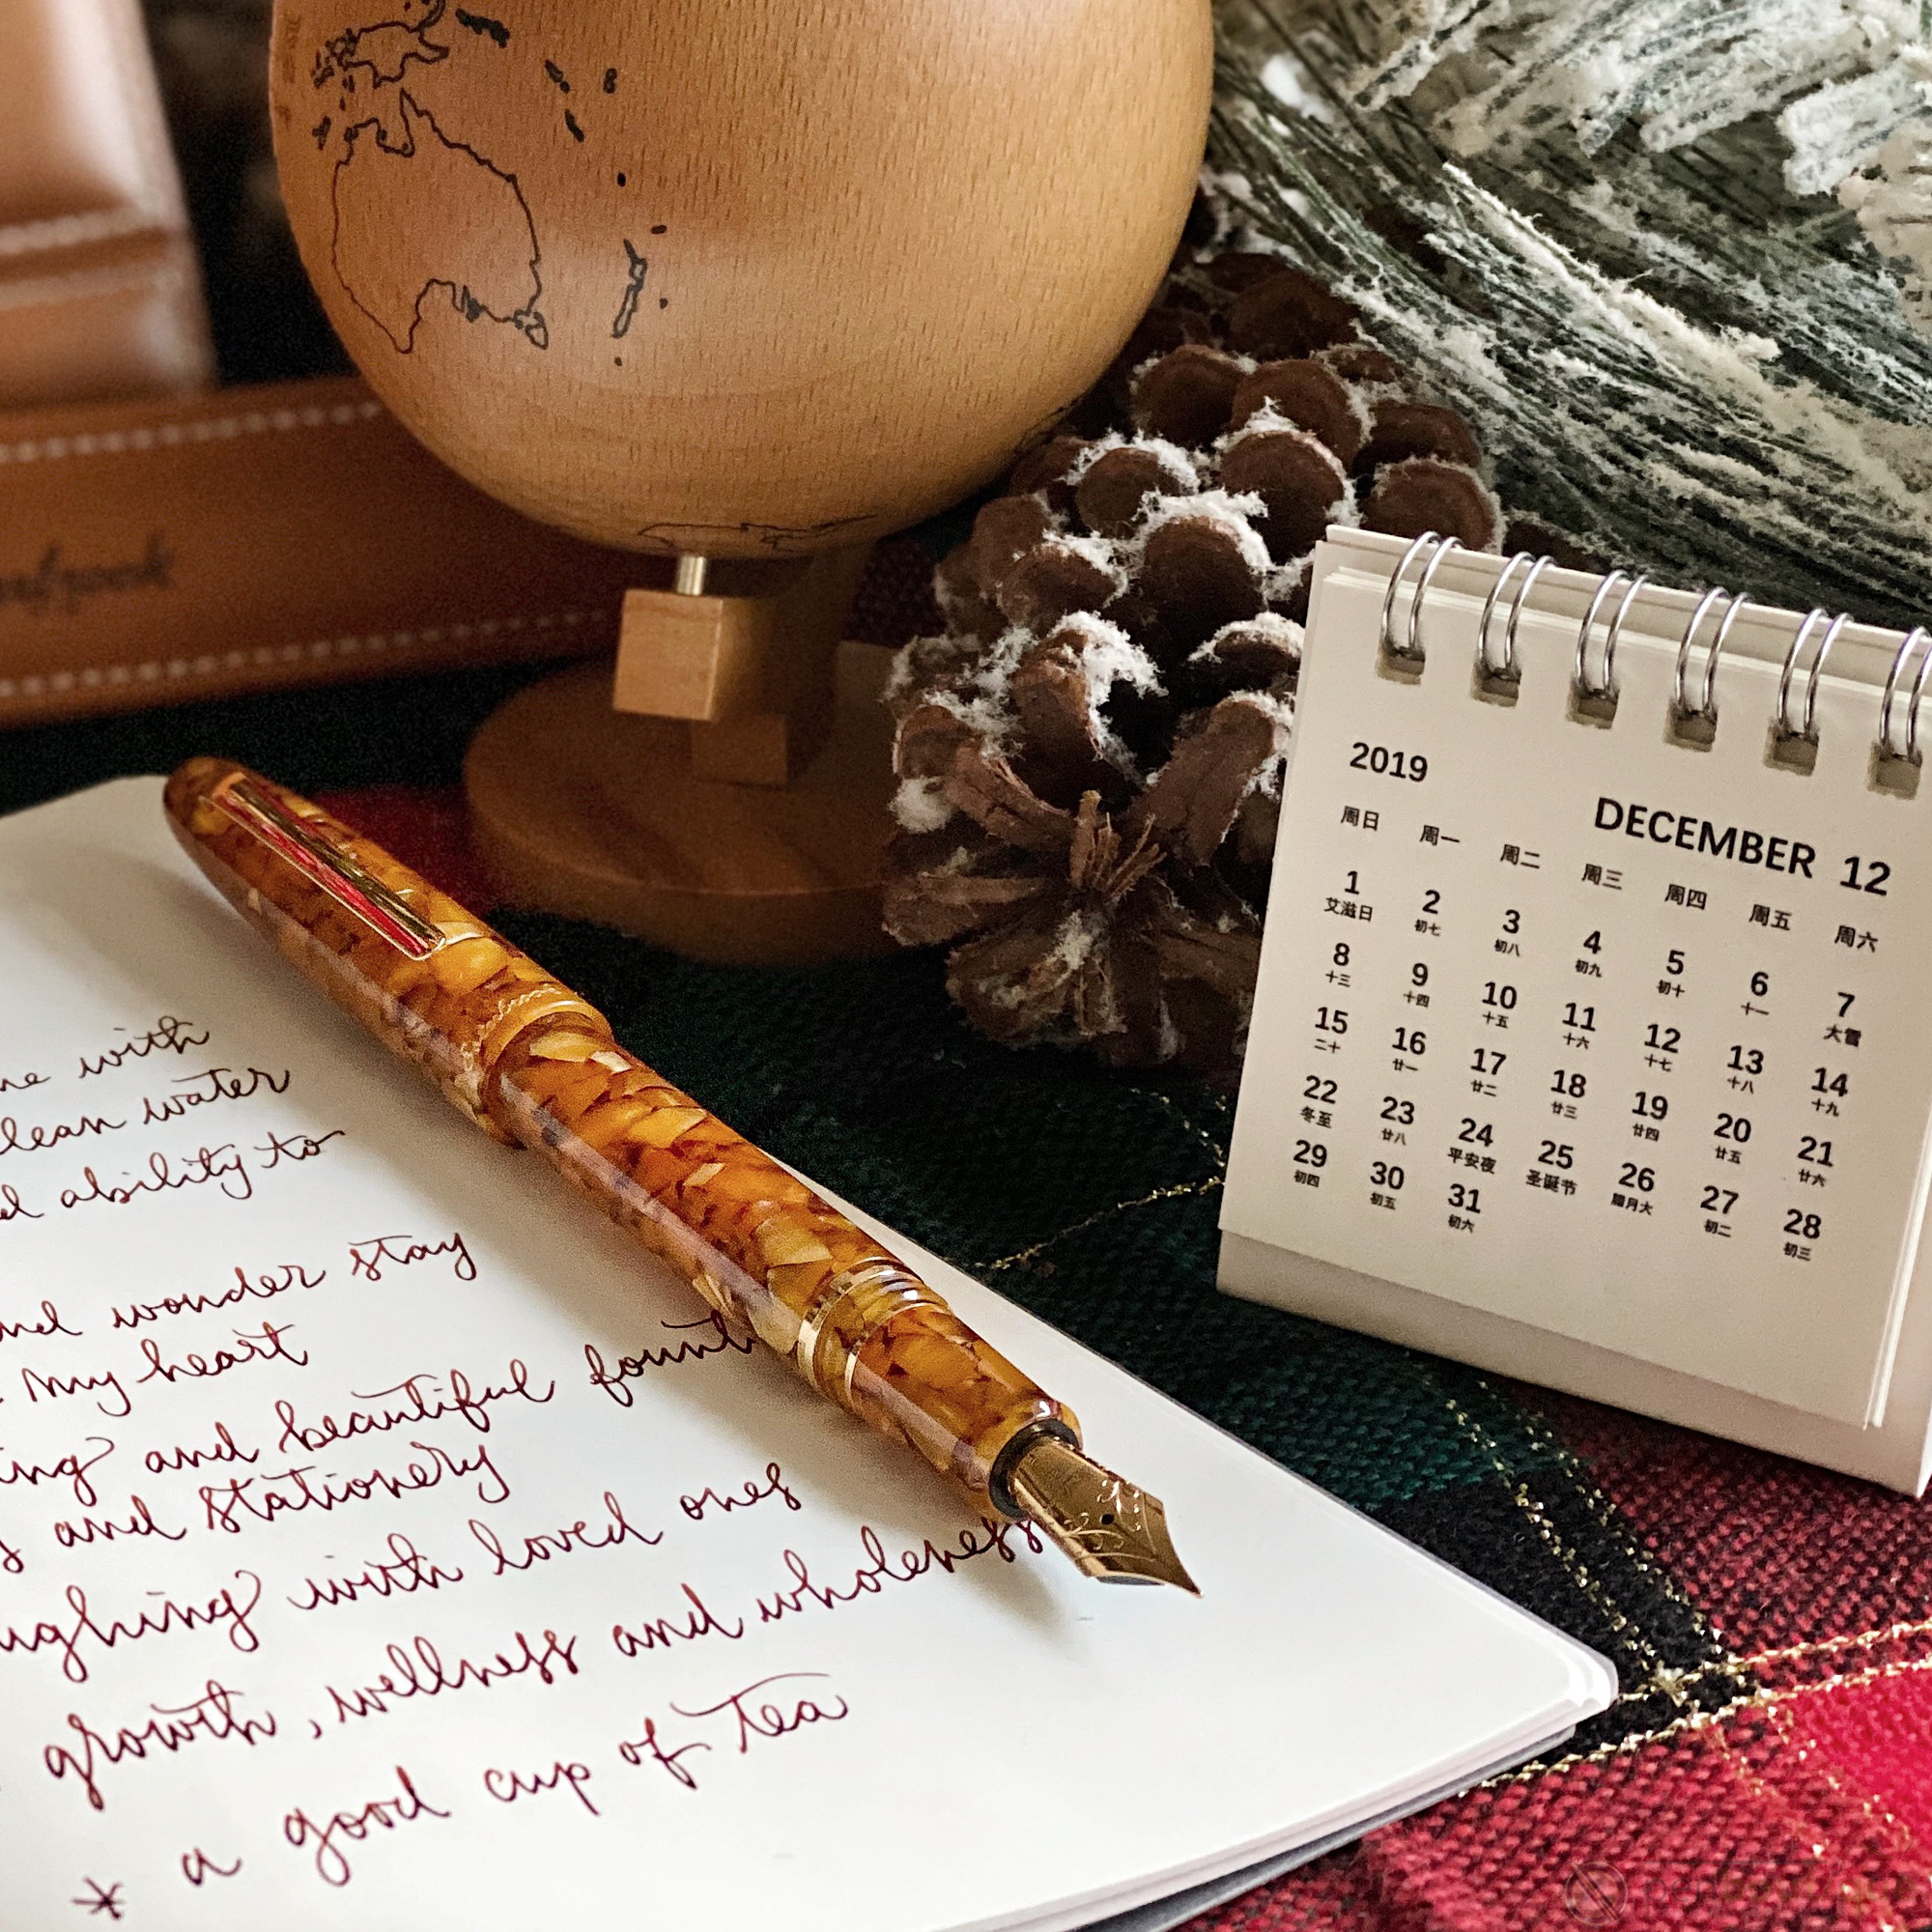 with
lean water
ability to
and wonder stay
my heart
ing and beautiful fount
and stationery
ughing with loved ones
growth, wellness and wholeness
* a good cup of tea
2019
DECEMBER 12
周日 周一 周二 周三 周四 周五 周六
1 2 3 4 5 6 7
艾滋日 初七 初八 初九 初十 十一 大雪
8 9 10 11 12 13 14
十三 十四 十五 十六 十七 十八 十九
15 16 17 18 19 20 21
二十 廿一 廿二 廿三 廿四 廿五 廿六
22 23 24 25 26 27 28
冬至 廿八 平安夜 圣诞节 腊月大 初二 初三
29 30 31
初四 初五 初六